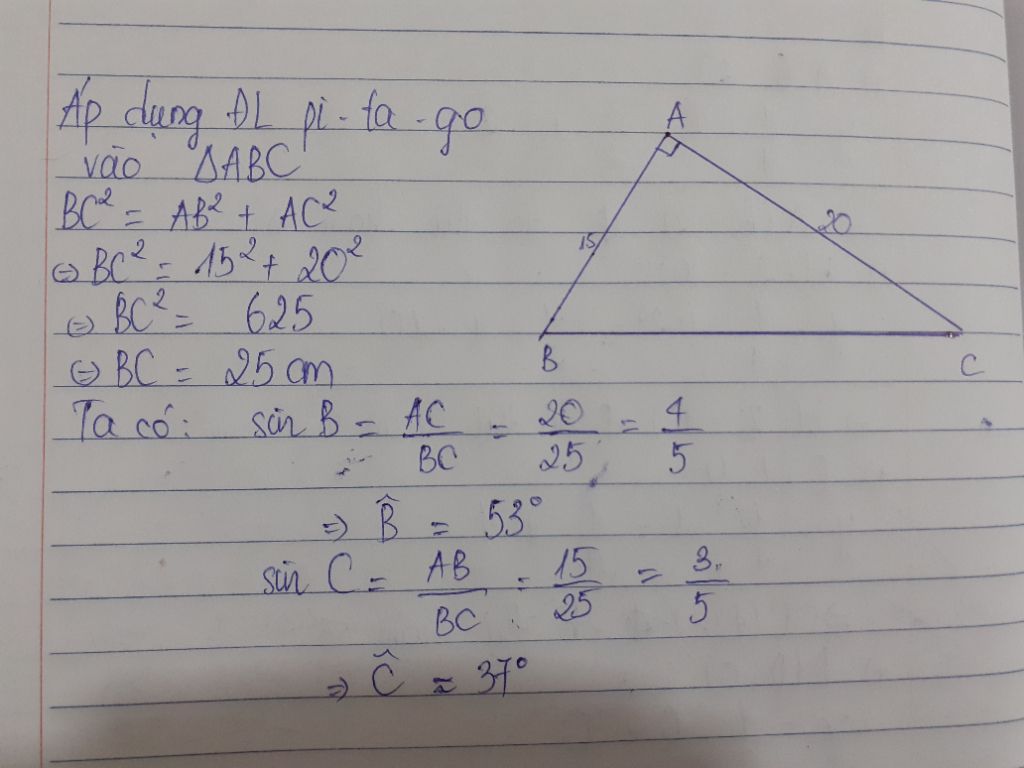 Áp dụng ĐL pi-ta-go
vào ΔABC
BC² = AB² + AC²
⇔ BC² = 15² + 20²
⇔ BC² = 625
⇔ BC = 25 cm
Ta có: sin B = AC/BC = 20/25 = 4/5
⇒ B̂ = 53°
sin C = AB/BC = 15/25 = 3/5
⇒ Ĉ ≈ 37°
A
15
20
B
C